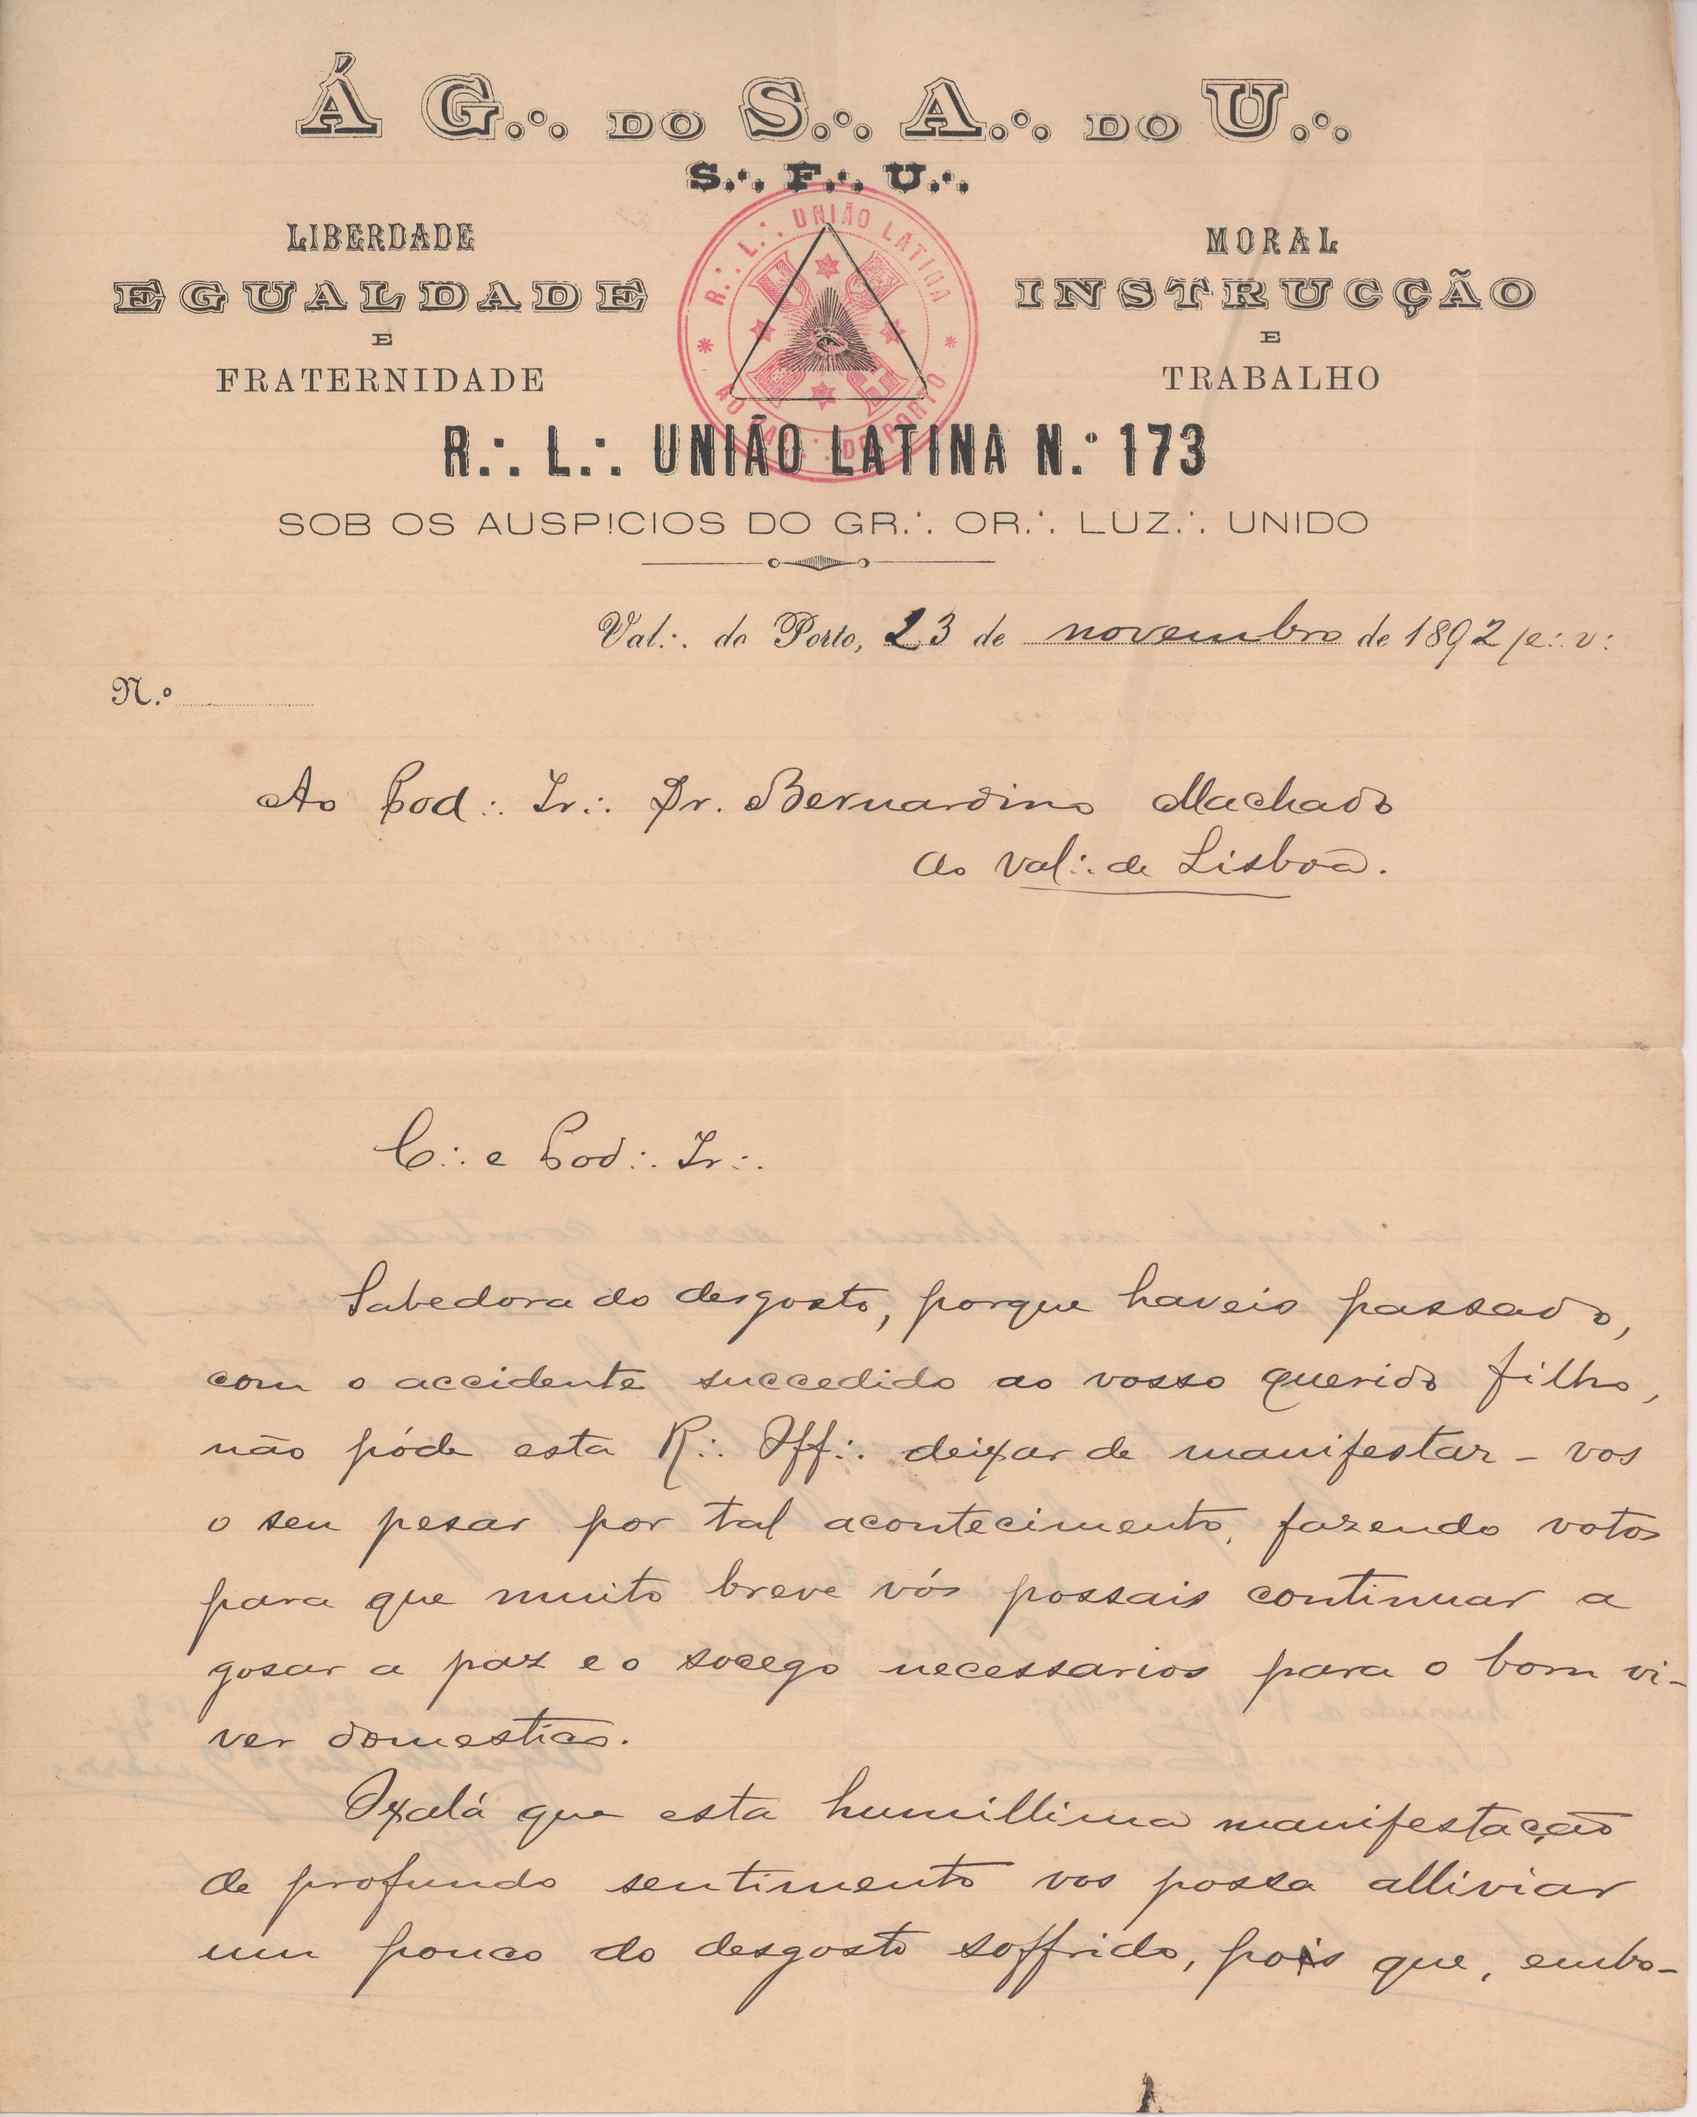 Á G.·. DO S.·. A.·. DO U.·.
S.·. F.·. U.·.
LIBERDADE
EGUALDADE
E
FRATERNIDADE
MORAL
INSTRUCÇÃO
E
TRABALHO
R.·. L.·. UNIÃO LATINA
AO VAL.·. DO PORTO
R.·. L.·. UNIÃO LATINA N.º 173
SOB OS AUSPICIOS DO GR.·. OR.·. LUZ.·. UNIDO
Val.·. do Porto, 23 de novembro de 1892 /e.·. v.·.
N.º
Ao Pod.·. Ir.·. Dr. Bernardino Machado
ao Val.·. de Lisboa.
C.·. e Pod.·. Ir.·.
Sabedora do desgosto, porque haveis passado,
com o accidente succedido ao vosso querido filho,
não póde esta R.·. Off.·. deixar de manifestar-vos
o seu pesar por tal acontecimento, fazendo votos
para que muito breve vós possais continuar a
gosar a paz e o socego necessarios para o bom vi-
ver domestico.
Oxalá que esta humillima manifestação
de profundo sentimento vos possa alliviar
um pouco do desgosto soffrido, pois que, embo-